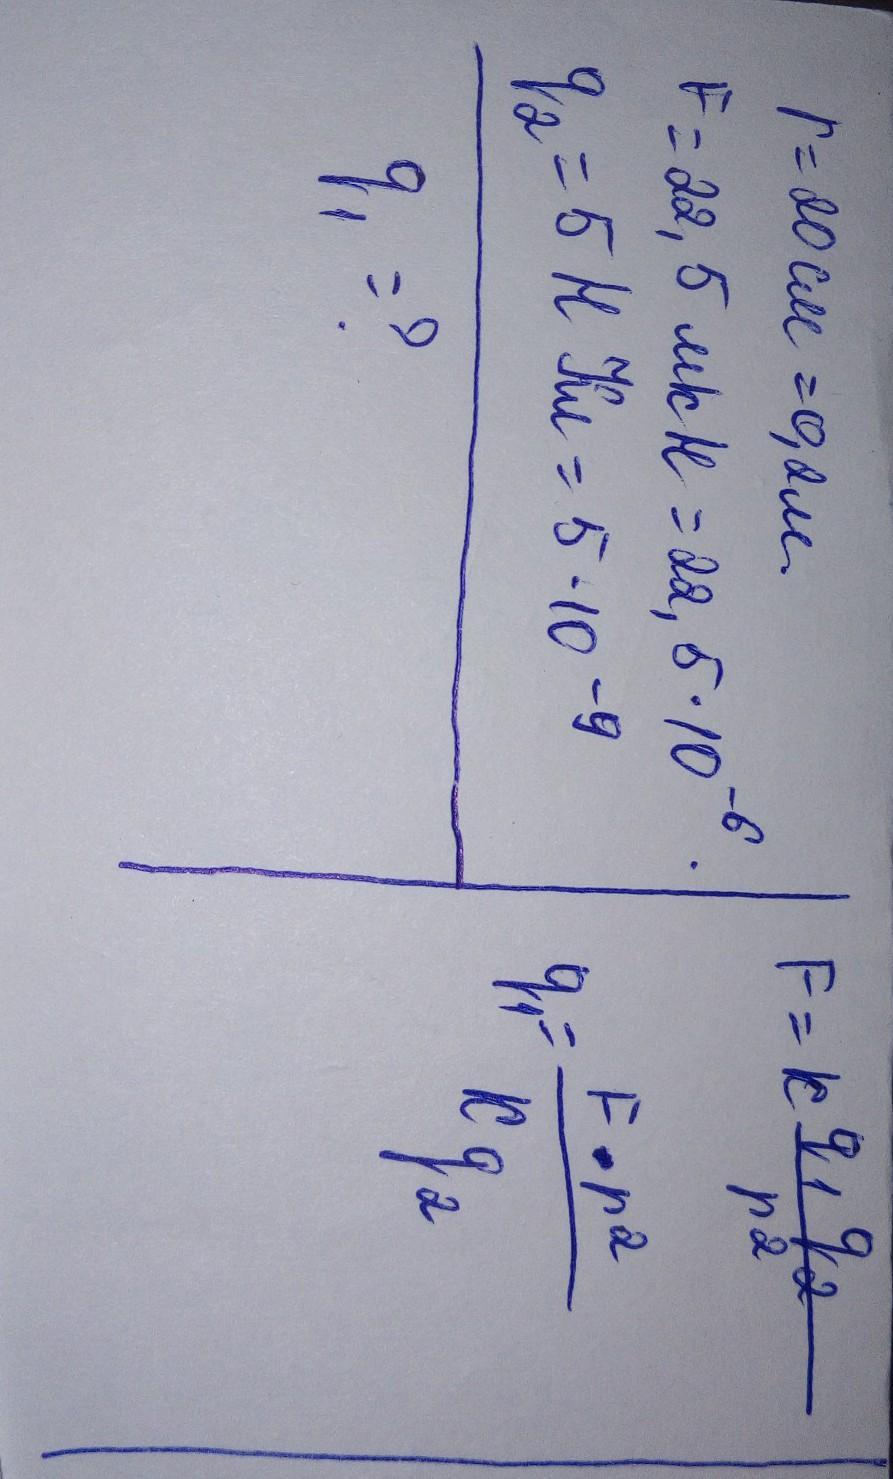 r = 20 см = 0,2 м.
F = 22,5 мкН = 22,5 · 10⁻⁶.
q₂ = 5 нКл = 5 · 10⁻⁹
q₁ = ?
F = k q₁ q₂ / r²
q₁ = F · r² / k q₂